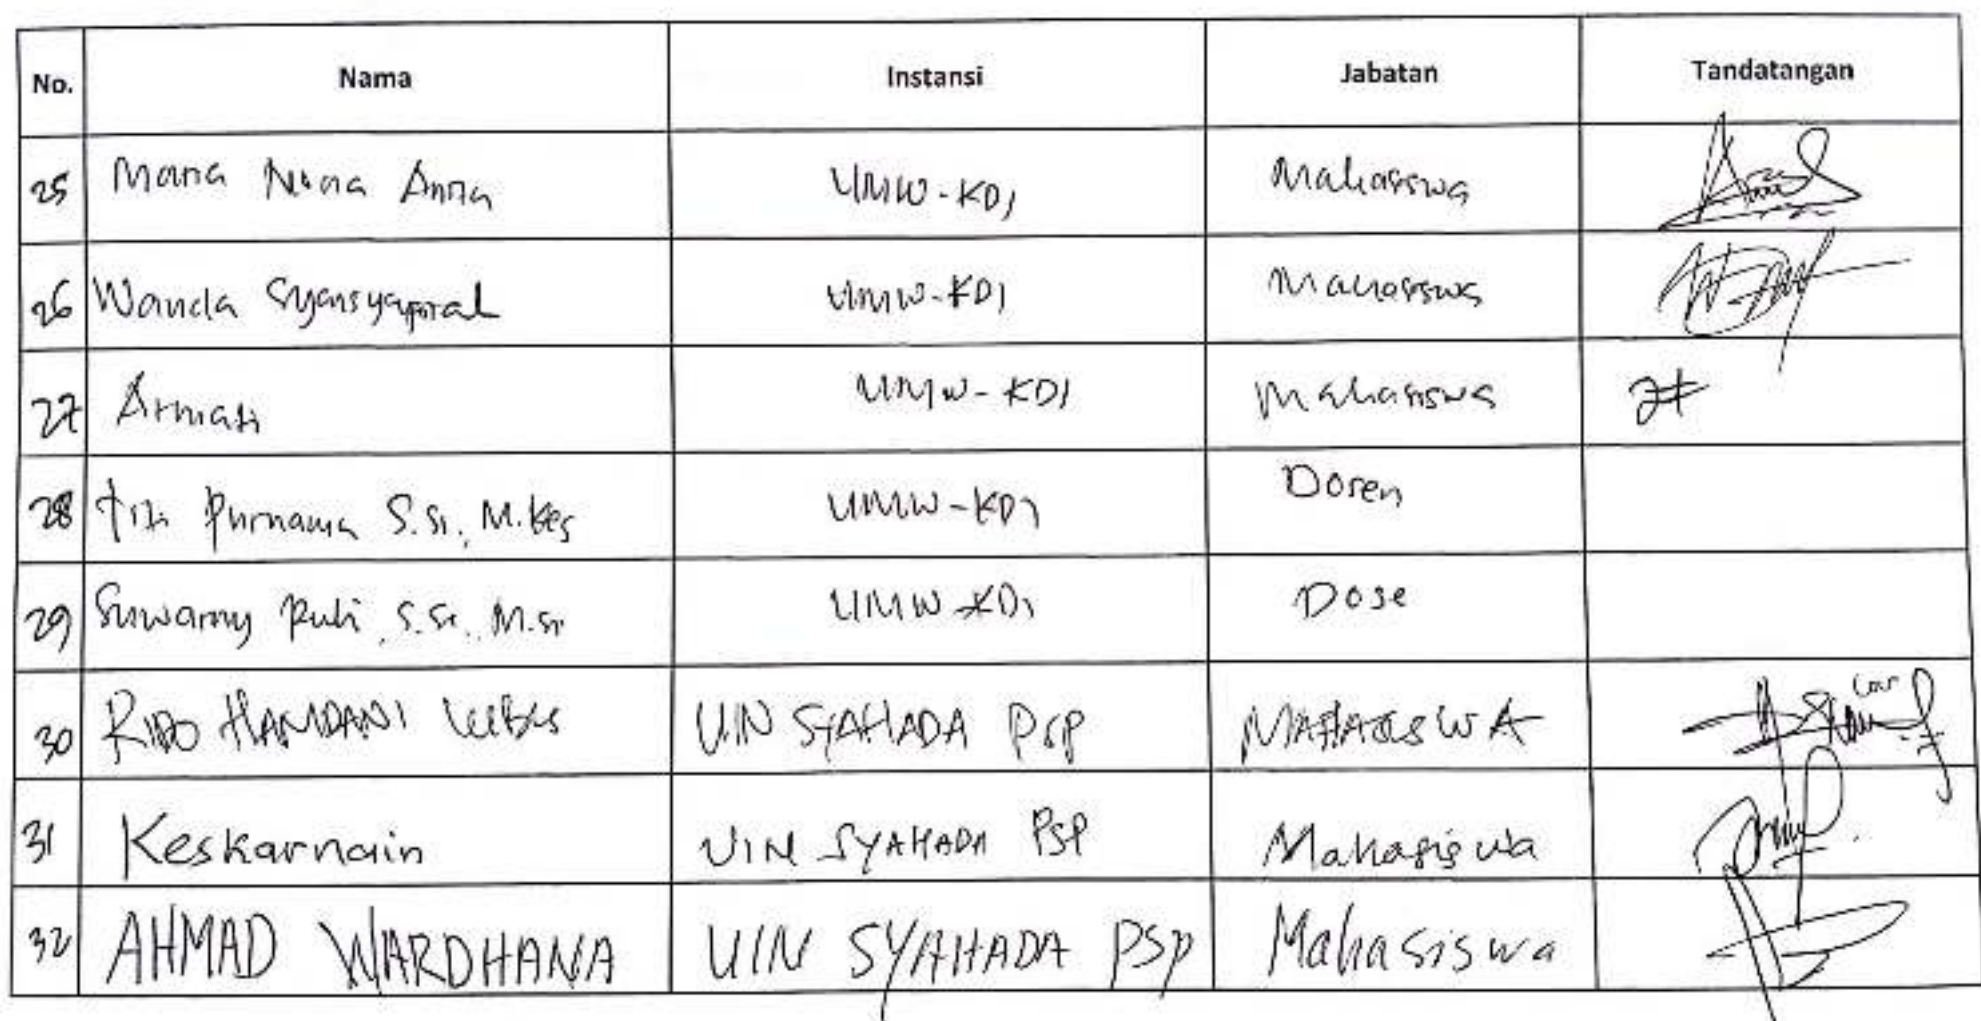 No. Nama Instansi Jabatan Tandatangan
25 Maria Nona Anita UMW-KDI Mahasiswa
26 Wanda UMW-KDI Mahasiswa
27 Armati UMW-KDI Mahasiswa
28 Titi Purnama S.Si., M.Kes UMW-KDI Dosen
29 Suwarny S.Si., M.Si UMW-KDI Dose
30 RIDO HAMDANI UIN SYAHADA PSP
31 Keskarnain UIN SYAHADA PSP Mahasiswa
32 AHMAD WARDHANA UIN SYAHADA PSP Mahasiswa